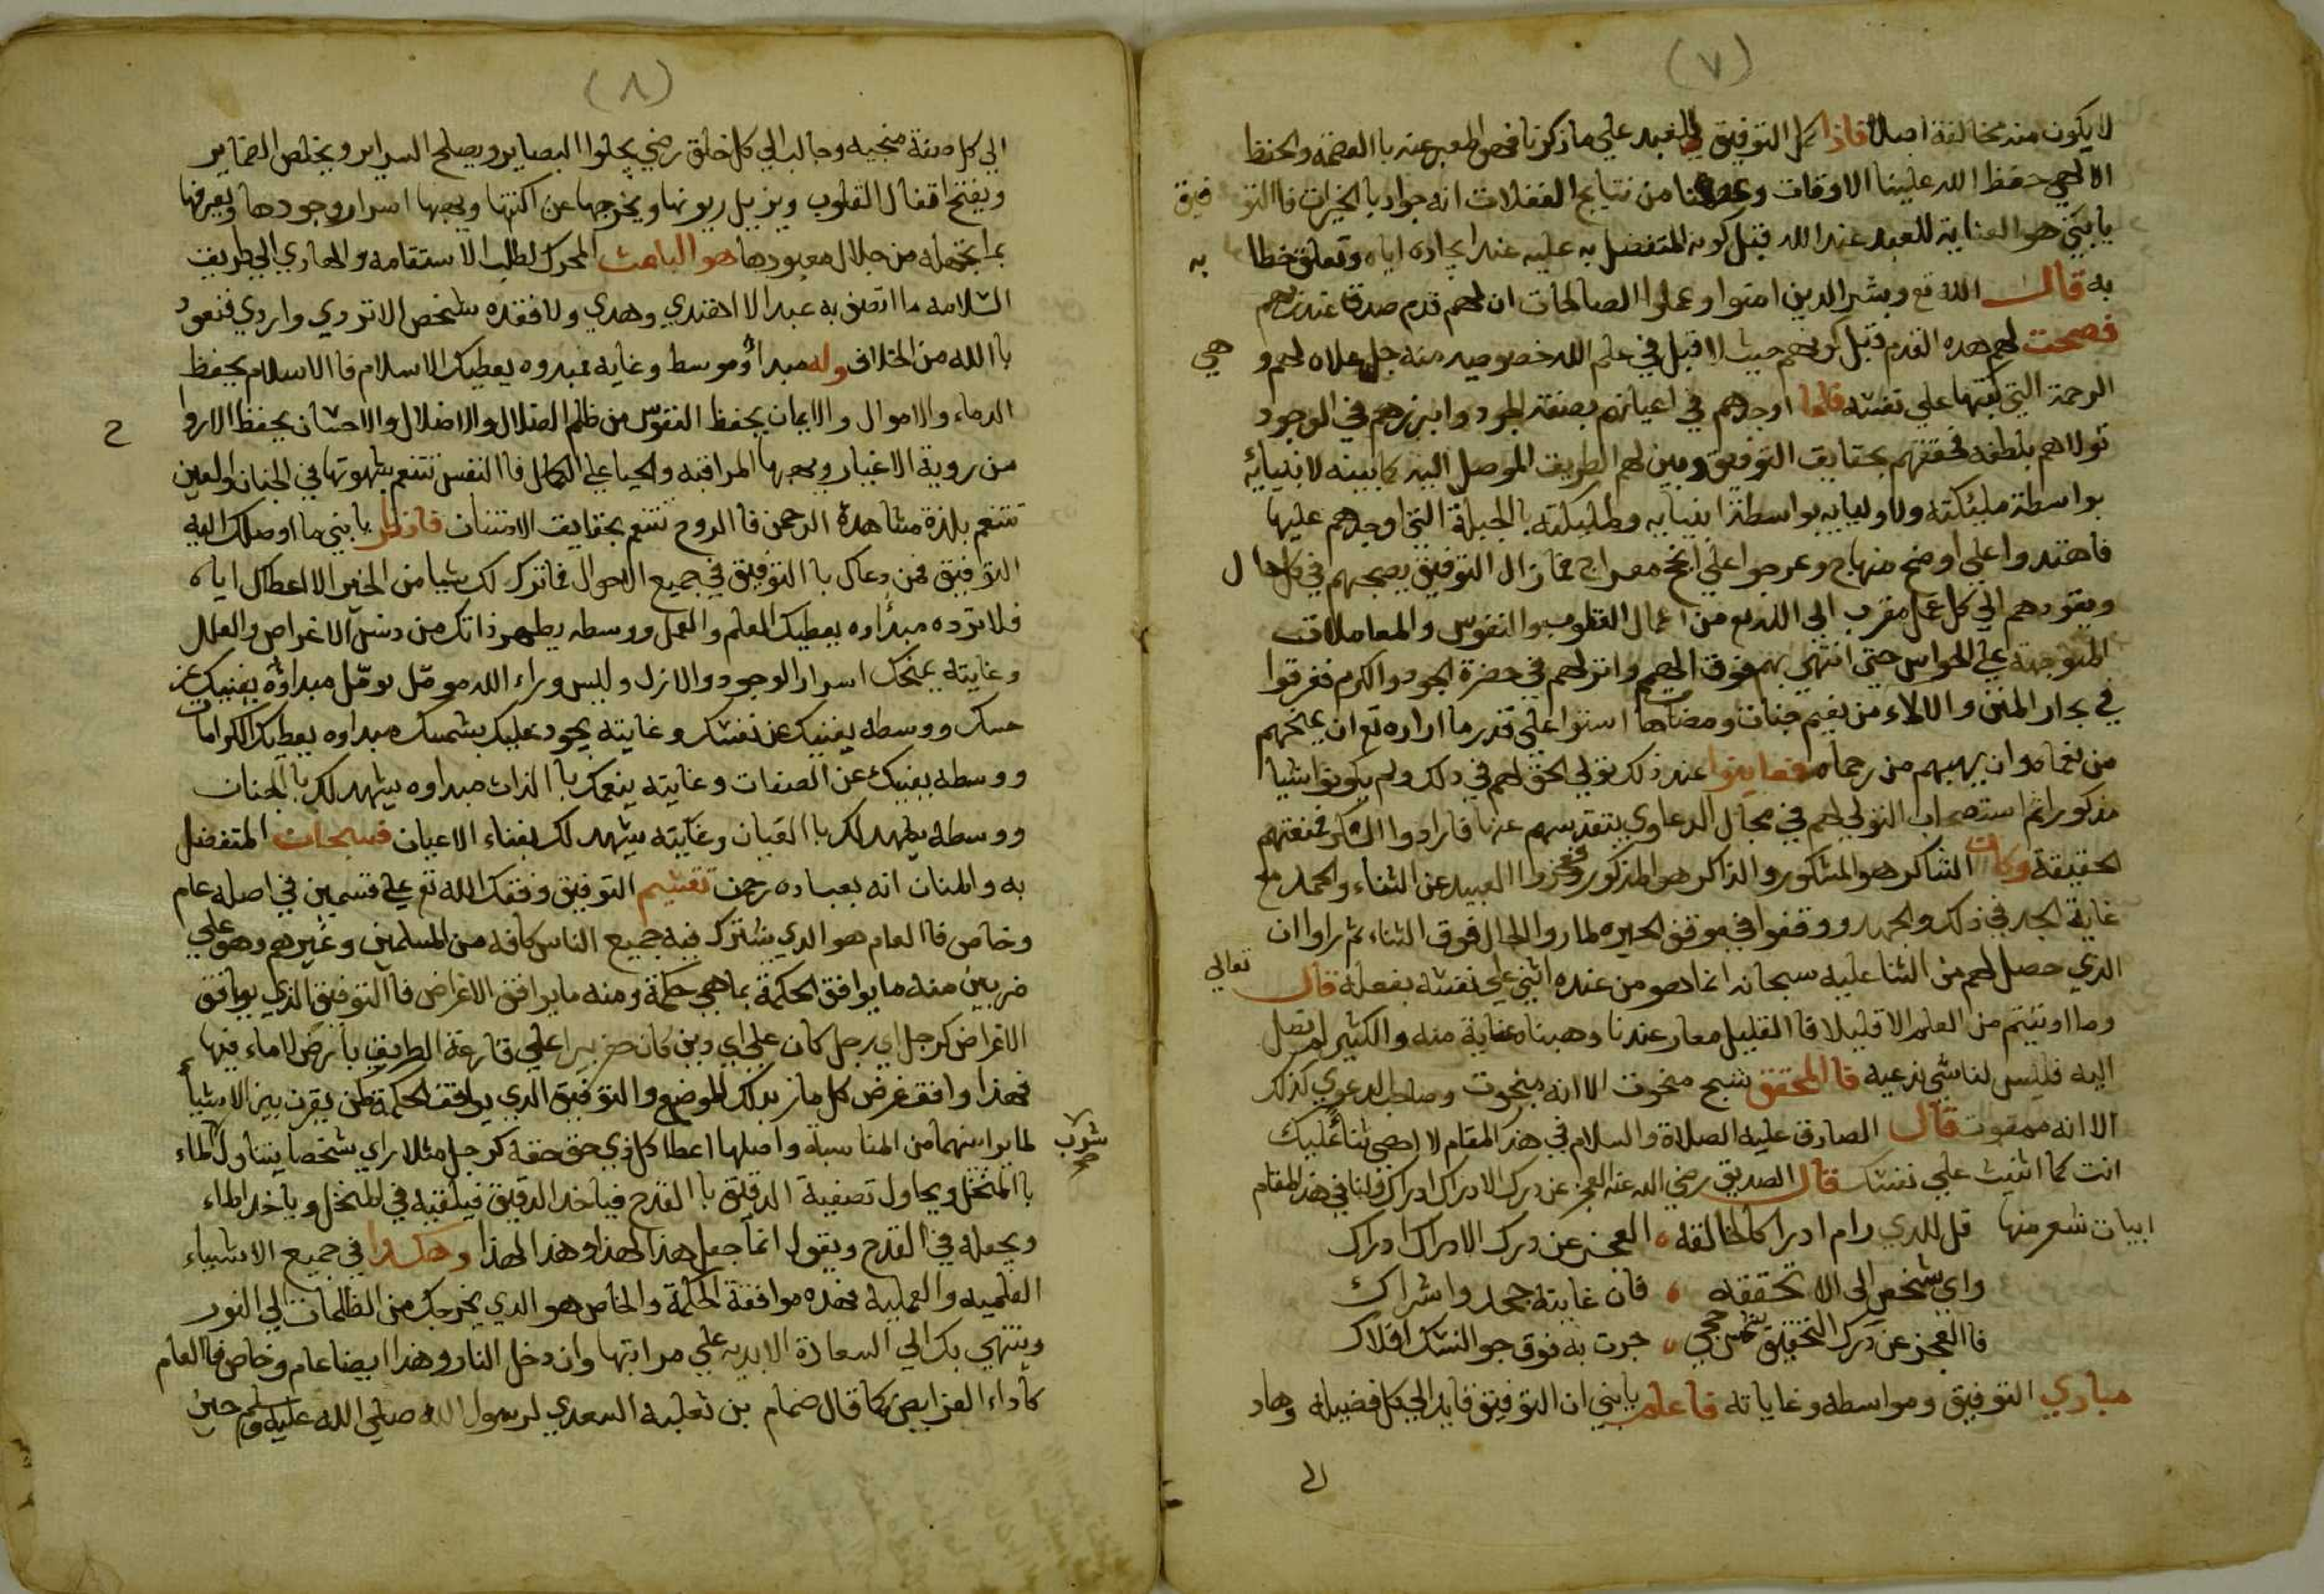 (٧)
لا يكون منه مخالفة اصلا فاذا كمل التوفيق للعبد علي ما ذكرنا فهو المعبر عنه با العصمة والحفظ
الالهي حفظ الله علينا الاوقات وعصمنا من نتايج الغفلات انه جواد با الخيرات فا التوفيق
يابني هو العناية للعبد عند الله قبل كونه المتفضل به عليه عند ايجاده اياه وتعلق خطابه
به قال الله تع وبشر الدين امنوا وعملوا الصالحات ان لهم قدم صدق عند ربهم
فصحت لهم هده القدم قبل كونهم حيث لا قبل في علم الله خصوصيه منه جل علاه لهم وهي
الرحمة التي كتبها علي نفسه فلما اوجدهم في اعيانهم بصفة الجود وابرزهم في الوجود
تولاهم بلطفه فحققهم بحقايق التوفيق وبين لهم الطريق الموصل اليه كما بينه لانبيائه
بواسطة مليكته ولاوليايه بواسطة انبيايه ومليكته با الجبلة التي اوجدهم عليها
فاهتدوا علي اوضح منهاج وعرجوا علي انجح معراج فما زال التوفيق يصحبهم في كل حال
ويقودهم الي كل عمل مقرب الي الله تع من اعمال القلوب والنفوس والمعاملات
المتوجهة علي الحواس حتي انتهي بهم فوق الهمم وانزلهم في حضرة الجود والكرم فغرقوا
في بحار المنن والالاء من نعيم جنان ومضاهات استوا علي قدر ما اراده تع ان يمنحهم
من نعماه وان يهبهم من رحماه فعاينوا عند ذلك تولي الحق لهم في دلك ولم يكونوا شيا
مذكورا ثم استصحاب التولي لهم في مجال الدعاوي بتقدسهم عنها فارادوا الشكر فمنعتهم
الحقيقة وكان الشاكر هو المشكور والذاكر هو المذكور فعجزوا العبيد عن الثناء والحمد مع
غاية الجد في ذلك والجهد ووقفوا في موقف الحيره لما راوا الحال فوق الثناء ثم راوا ان
الذي حصل لهم من الثنا عليه سبحانه انما هو من عنده اثني علي نفسه بفعله قال تعالي
وما اوتيتم من العلم الا قليلا فا القليل معار عندنا وهبناه عناية منه والكثير لم نصل
اليه فليس لنا شي ندعيه فا المحقق شبح منحوت الا انه مبخوت وصاحب الدعوي كذلك
الا انه ممقوت قال الصادق عليه الصلاة والسلام في هذا المقام لا احصي ثناً عليك
انت كما اثنيت علي نفسك قال الصديق رضي الله عنه العجز عن درك الادراك ادراك وقلنا في هذا المقام
ابيات شعر منها قل للدي رام ادراكا لخالقه ، العجز عن درك الادراك ادراك
واي شخص الي الا تحققه ، فان غايته جحد واشراك
فا العجز عن درك التحقيق شمس حجي ، جرت به فوق جو النسك افلاك
مبادي التوفيق ومواسطه وغاياته فاعلم يابني ان التوفيق قايد الي كل فضيلة وهاد
الي
(٨)
الي كل صفة منجيه وجالب الي كل خلق رضي يجلوا البصاير ويصلح السراير ويخلص الضماير
ويفتح اقفال القلوب ويزيل ريونها ويخرجها عن اكنتها ويهبها اسرار وجودها ويعرفها
بما تجهله من جلال معبودها هو الباعث المحرك لطلب الاستقامه والهادي الي طريق
السلامه ما اتصف به عبد الا اهتدي وهدي ولا فقده شخص الا تردي واردي فنعود
با الله من الخلاف وله مبدا وموسط وغايه فمبدوه يعطيك الاسلام فا الاسلام يحفظ
الدماء والاموال والايمان يحفظ النفوس من ظلم الضلال والاضلال والاحسان يحفظ الارواح
من روية الاغيار ويهبها المراقبه والحيا علي الكمال فا النفس تتنعم بشهوتها في الجنان والعين
تتنعم بلذة مشاهدة الرحمن فا الروح تتنعم بحقايق الامتنان فانظر يابني ما اوصلك اليه
التوافيق فمن دعاك با التوفيق في جميع الاحوال فما ترك لك شيا من الخير الا اعطاك اياه
فلا ترده مبداوه يعطيك العلم والعمل ووسطه يطهر ذاتك من دنس الاغراض والعلل
وغايته يمنحك اسرار الوجود والازل وليس وراء الله مومّل يومّل مبداؤه يفنيك عن
حسك ووسطه يفنيك عن نفسك وغايته يجود عليك بشمسك مبداوه يعطيك الكرامات
ووسطه يفنيك عن الصفات وغايته ينعمك با الذات مبداوه يشهد لك با الجنان
ووسطه يشهد لك با العيان وغايته يشهد لك بفناء الاعيان فسبحان المتفضل
به والمنان انه بعباده رحمن تقسيم التوفيق وفقك الله تع علي قسمين في اصله عام
وخاص فا العام هو الدي يشترك فيه جميع الناس كافه من المسلمين وغيرهم وهو علي
ضربين منه ما يوافق الحكمة بما هي حكمة ومنه ما يوافق الاغراض فا التوفيق الذي يوافق
الاغراض كرجل اي رجل كان علي اي دين كان حفر بيرا علي قارعة الطريق بارض لا ماء فيها
فهذا وافق غرض كل مار بدلك الموضع والتوفيق الدي يوافق الحكمة كمن يقرن بين الاشياء
لما يراه بينهما من المناسبة واصلها اعطا كل ذي حق حقه كرجل مثلا راي شخصا يتناول شرب الماء
با المنخل ويحاول تصفية الدقيق با القدح فياخد الدقيق فيلقيه في المنخل وياخد الماء
ويجعله في القدح ويقول انما جعل هذا لهذا وهذا لهذا وهكدا في جميع الاشياء
العلميه والعمليه فهذه موافقة الحكمة والخاص هو الدي يخرجك من الظلمات الي النور
وينتهي بك الي السعادة الابديه علي مراتبها وان دخل النار وهذا ايضا عام وخاص فا العام
كاداء الفرايض كما قال ضمام بن ثعلبه السعدي لرسول الله صلي الله عليه وسلم حين